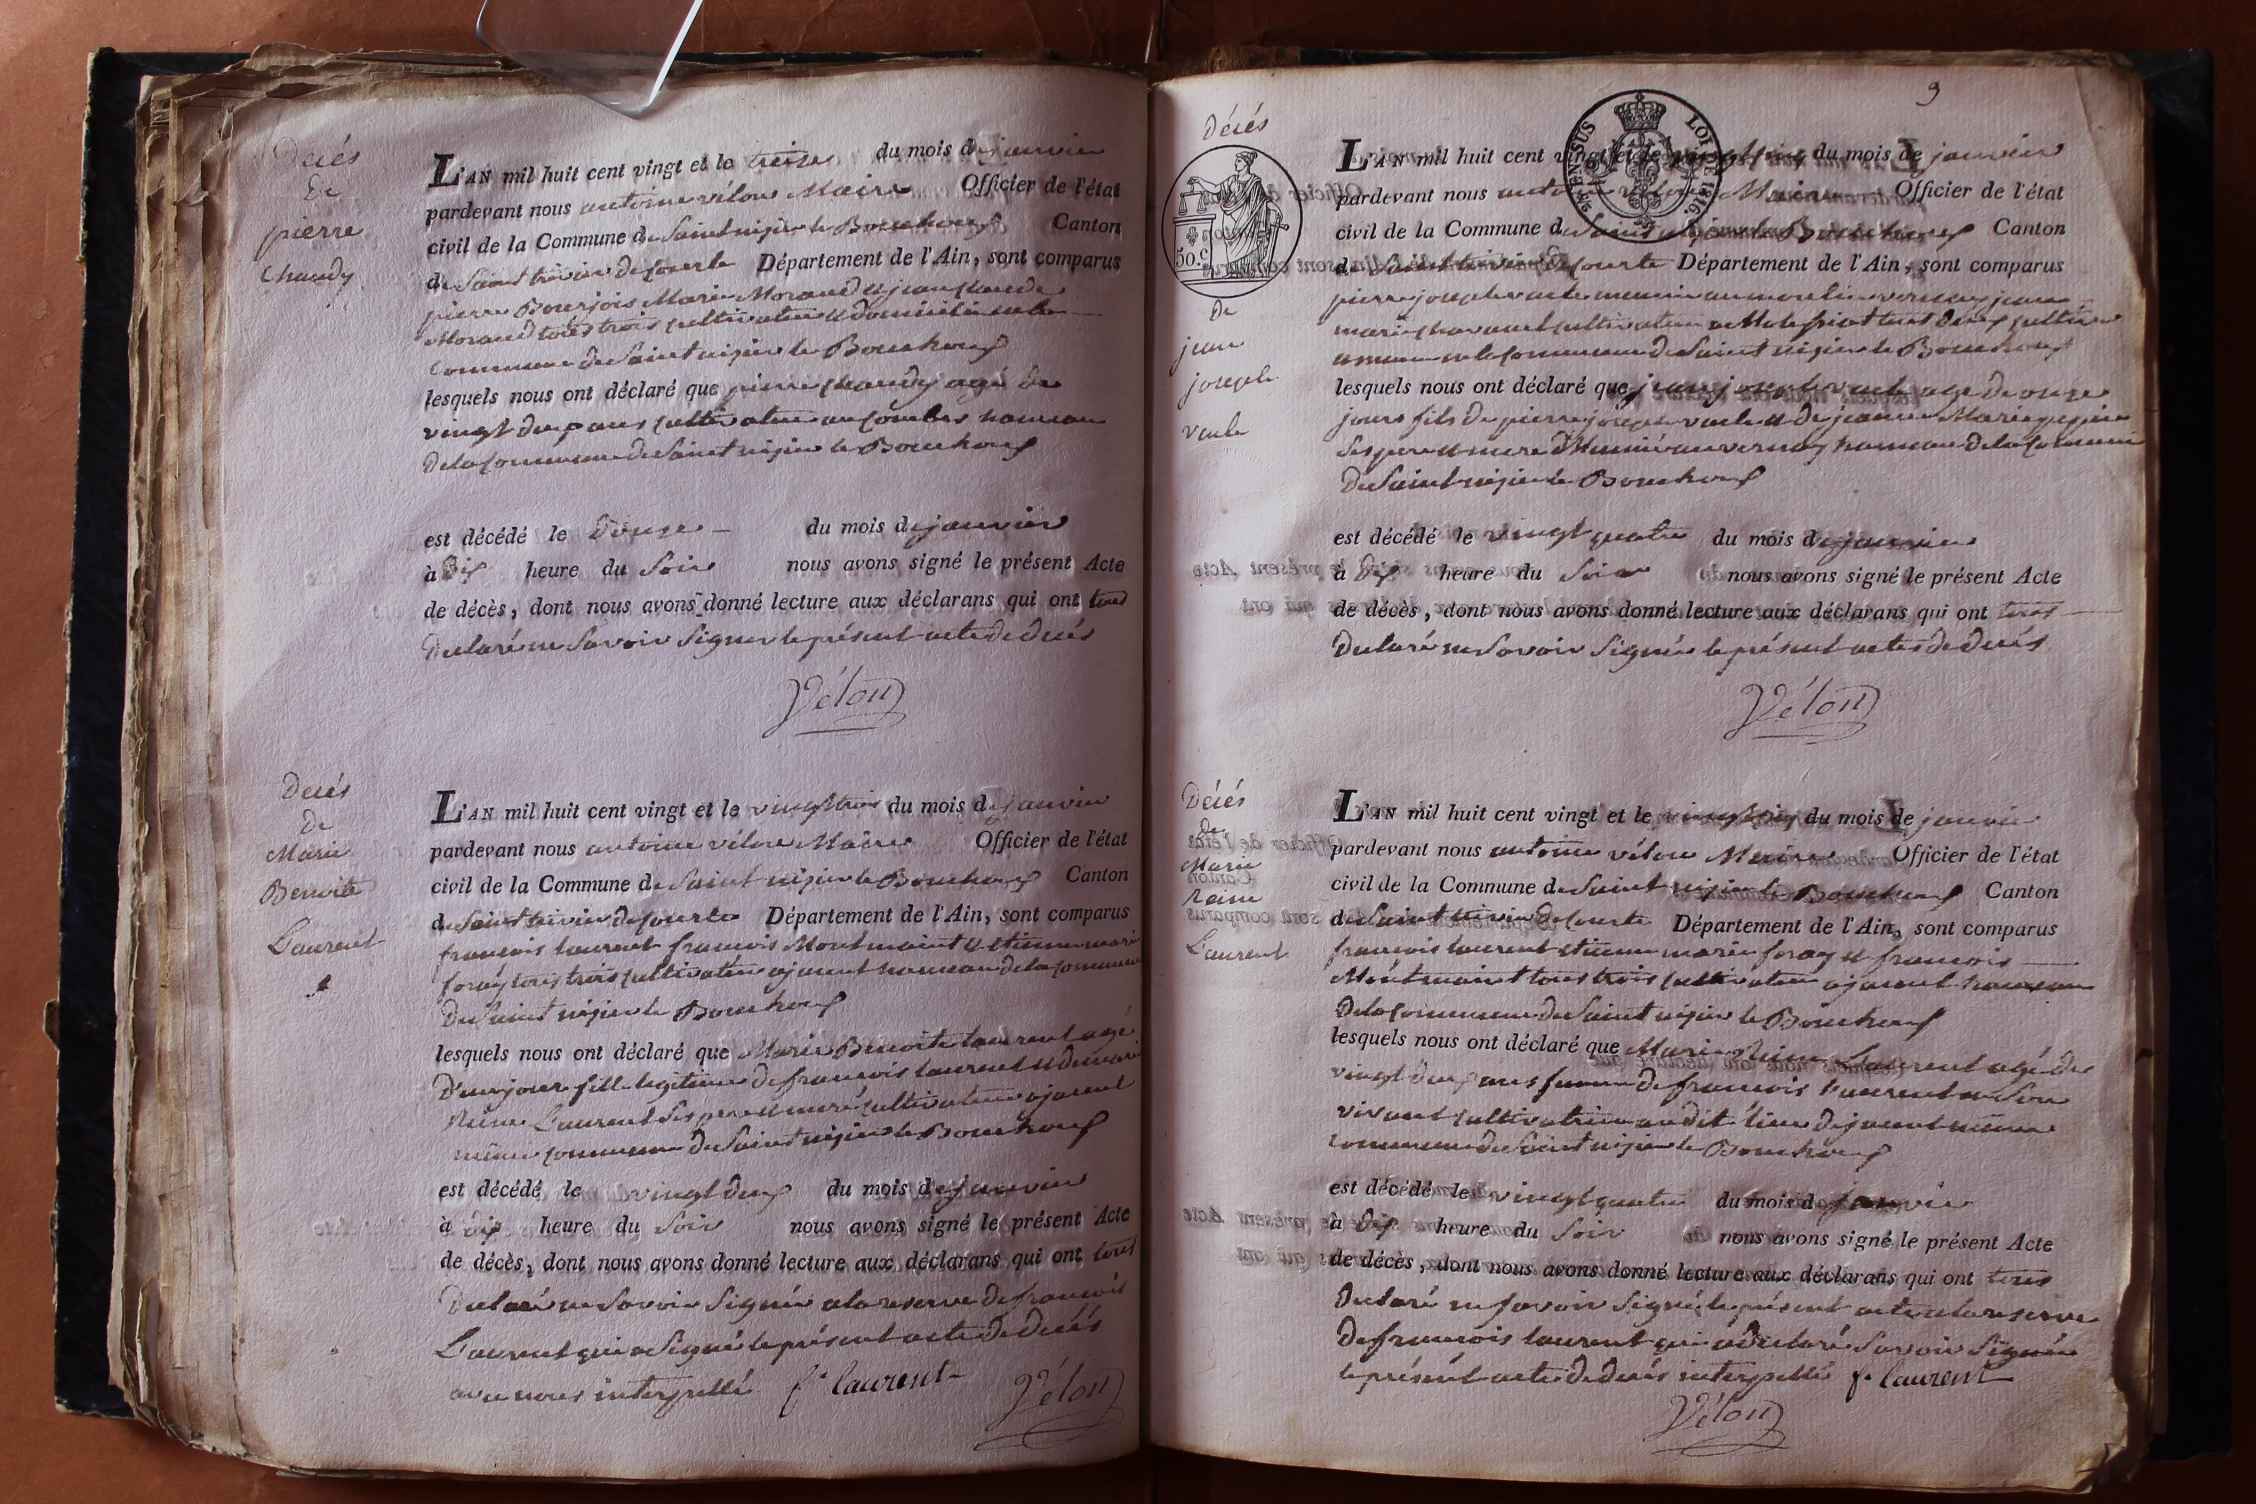 Décés
de
pierre
Chaudy
L'AN mil huit cent vingt et le treize du mois de janvier
pardevant nous antoine vélon Maire Officier de l'état
civil de la Commune de Saint nizier le Bouchoux Canton
de Saint trivier de Courte Département de l'Ain, sont comparus
pierre Bourjois Marie Morand et jean claude
Morand tous trois cultivateur et domicilié en la
commune de Saint nizier le Bouchoux
lesquels nous ont déclaré que pierre chaudy agé de
vingt deux ans cultivateur au hameau
de la Commune de Saint nizier le Bouchoux
est décédé le Douze du mois de janvier
à Dix heure du Soir nous avons signé le présent Acte
de décès, dont nous avons donné lecture aux déclarans qui ont tous
Déclaré ne Savoir Signer le présent acte de décés
Vélon
Décés
de
Marie
Benoite
Laurent
L'AN mil huit cent vingt et le vingt trois du mois de janvier
pardevant nous antoine vélon Maire Officier de l'état
civil de la Commune de Saint nizier le Bouchoux Canton
de Saint trivier de Courte Département de l'Ain, sont comparus
francois laurent francois Montmaint et etienne marie
foray tous trois cultivateur ajacout hameau de la commune
de Saint nizier le Bouchoux
lesquels nous ont déclaré que Marie Benoite laurent agé
D'un jour fille legitime de francois laurent et de marie
Reine Laurent Ses pere et mere cultivateur ajacout
même commune de Saint nizier le Bouchoux
est décédé le vingt deux du mois de janvier
à Dix heure du Soir nous avons signé le présent Acte
de décès, dont nous avons donné lecture aux déclarans qui ont tous
Déclaré ne Savoir Signée a la reserve de francois
Laurent qui a Signé le présent acte de décés
avec nous interpellé f. laurent
Vélon
9
Décés
50.c
de
jean
joseph
vaule
TIMBRE SUSP LOI DE 1816
L'AN mil huit cent vingt et le vingt cinq du mois de janvier
pardevant nous antoine vélon Maire Officier de l'état
civil de la Commune de Saint nizier le Bouchoux Canton
de Saint trivier de Courte Département de l'Ain, sont comparus
pierre joseph vaule meunier au moulin vernay jean
marie chavanel cultivateur tous deux
en la commune de Saint nizier le Bouchoux
lesquels nous ont déclaré que jean joseph vaule age de onze
jours fils de pierre joseph vaule et de jeanne Marie
Ses pere et mere au vernay hameau de la commune
de Saint nizier le Bouchoux
est décédé le vingt quatre du mois de janvier
à Dix heure du Soir nous avons signé le présent Acte
de décès, dont nous avons donné lecture aux déclarans qui ont tous
Déclaré ne Savoir Signée le présent acte de décés
Vélon
Décés
de
Marie
Reine
Laurent
L'AN mil huit cent vingt et le vingt six du mois de janvier
pardevant nous antoine vélon Maire Officier de l'état
civil de la Commune de Saint nizier le Bouchoux Canton
de Saint trivier de Courte Département de l'Ain, sont comparus
francois laurent etienne marie foray et francois
Montmaint tous trois cultivateur ajacout hameau
de la Commune de Saint nizier le Bouchoux
lesquels nous ont déclaré que Marie Reine Laurent agé de
vingt deux ans femme de francois laurent en Son
vivant cultivatrice au dit lieu même
commune de Saint nizier le Bouchoux
est décédé le vingt quatre du mois de janvier
à Dix heure du Soir nous avons signé le présent Acte
de décès, dont nous avons donné lecture aux déclarans qui ont tous
Déclaré ne Savoir Signé le présent acte a la reserve
de francois laurent qui a déclaré Savoir Signée
le présent acte de décés interpellé f. laurent
Vélon